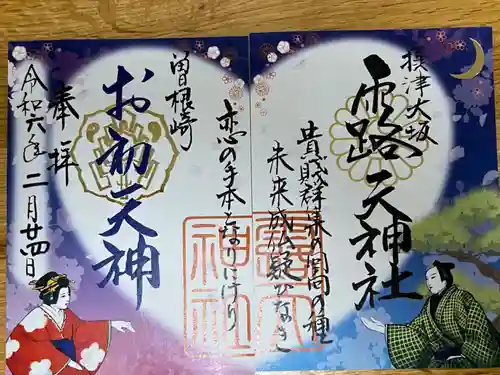 摂津大坂
露天神社
貴賤群集の回向の種
未来成仏疑ひなき
恋の手本となりにけり
曽根崎
お初天神
奉拝
令和六年二月廿四日
神社